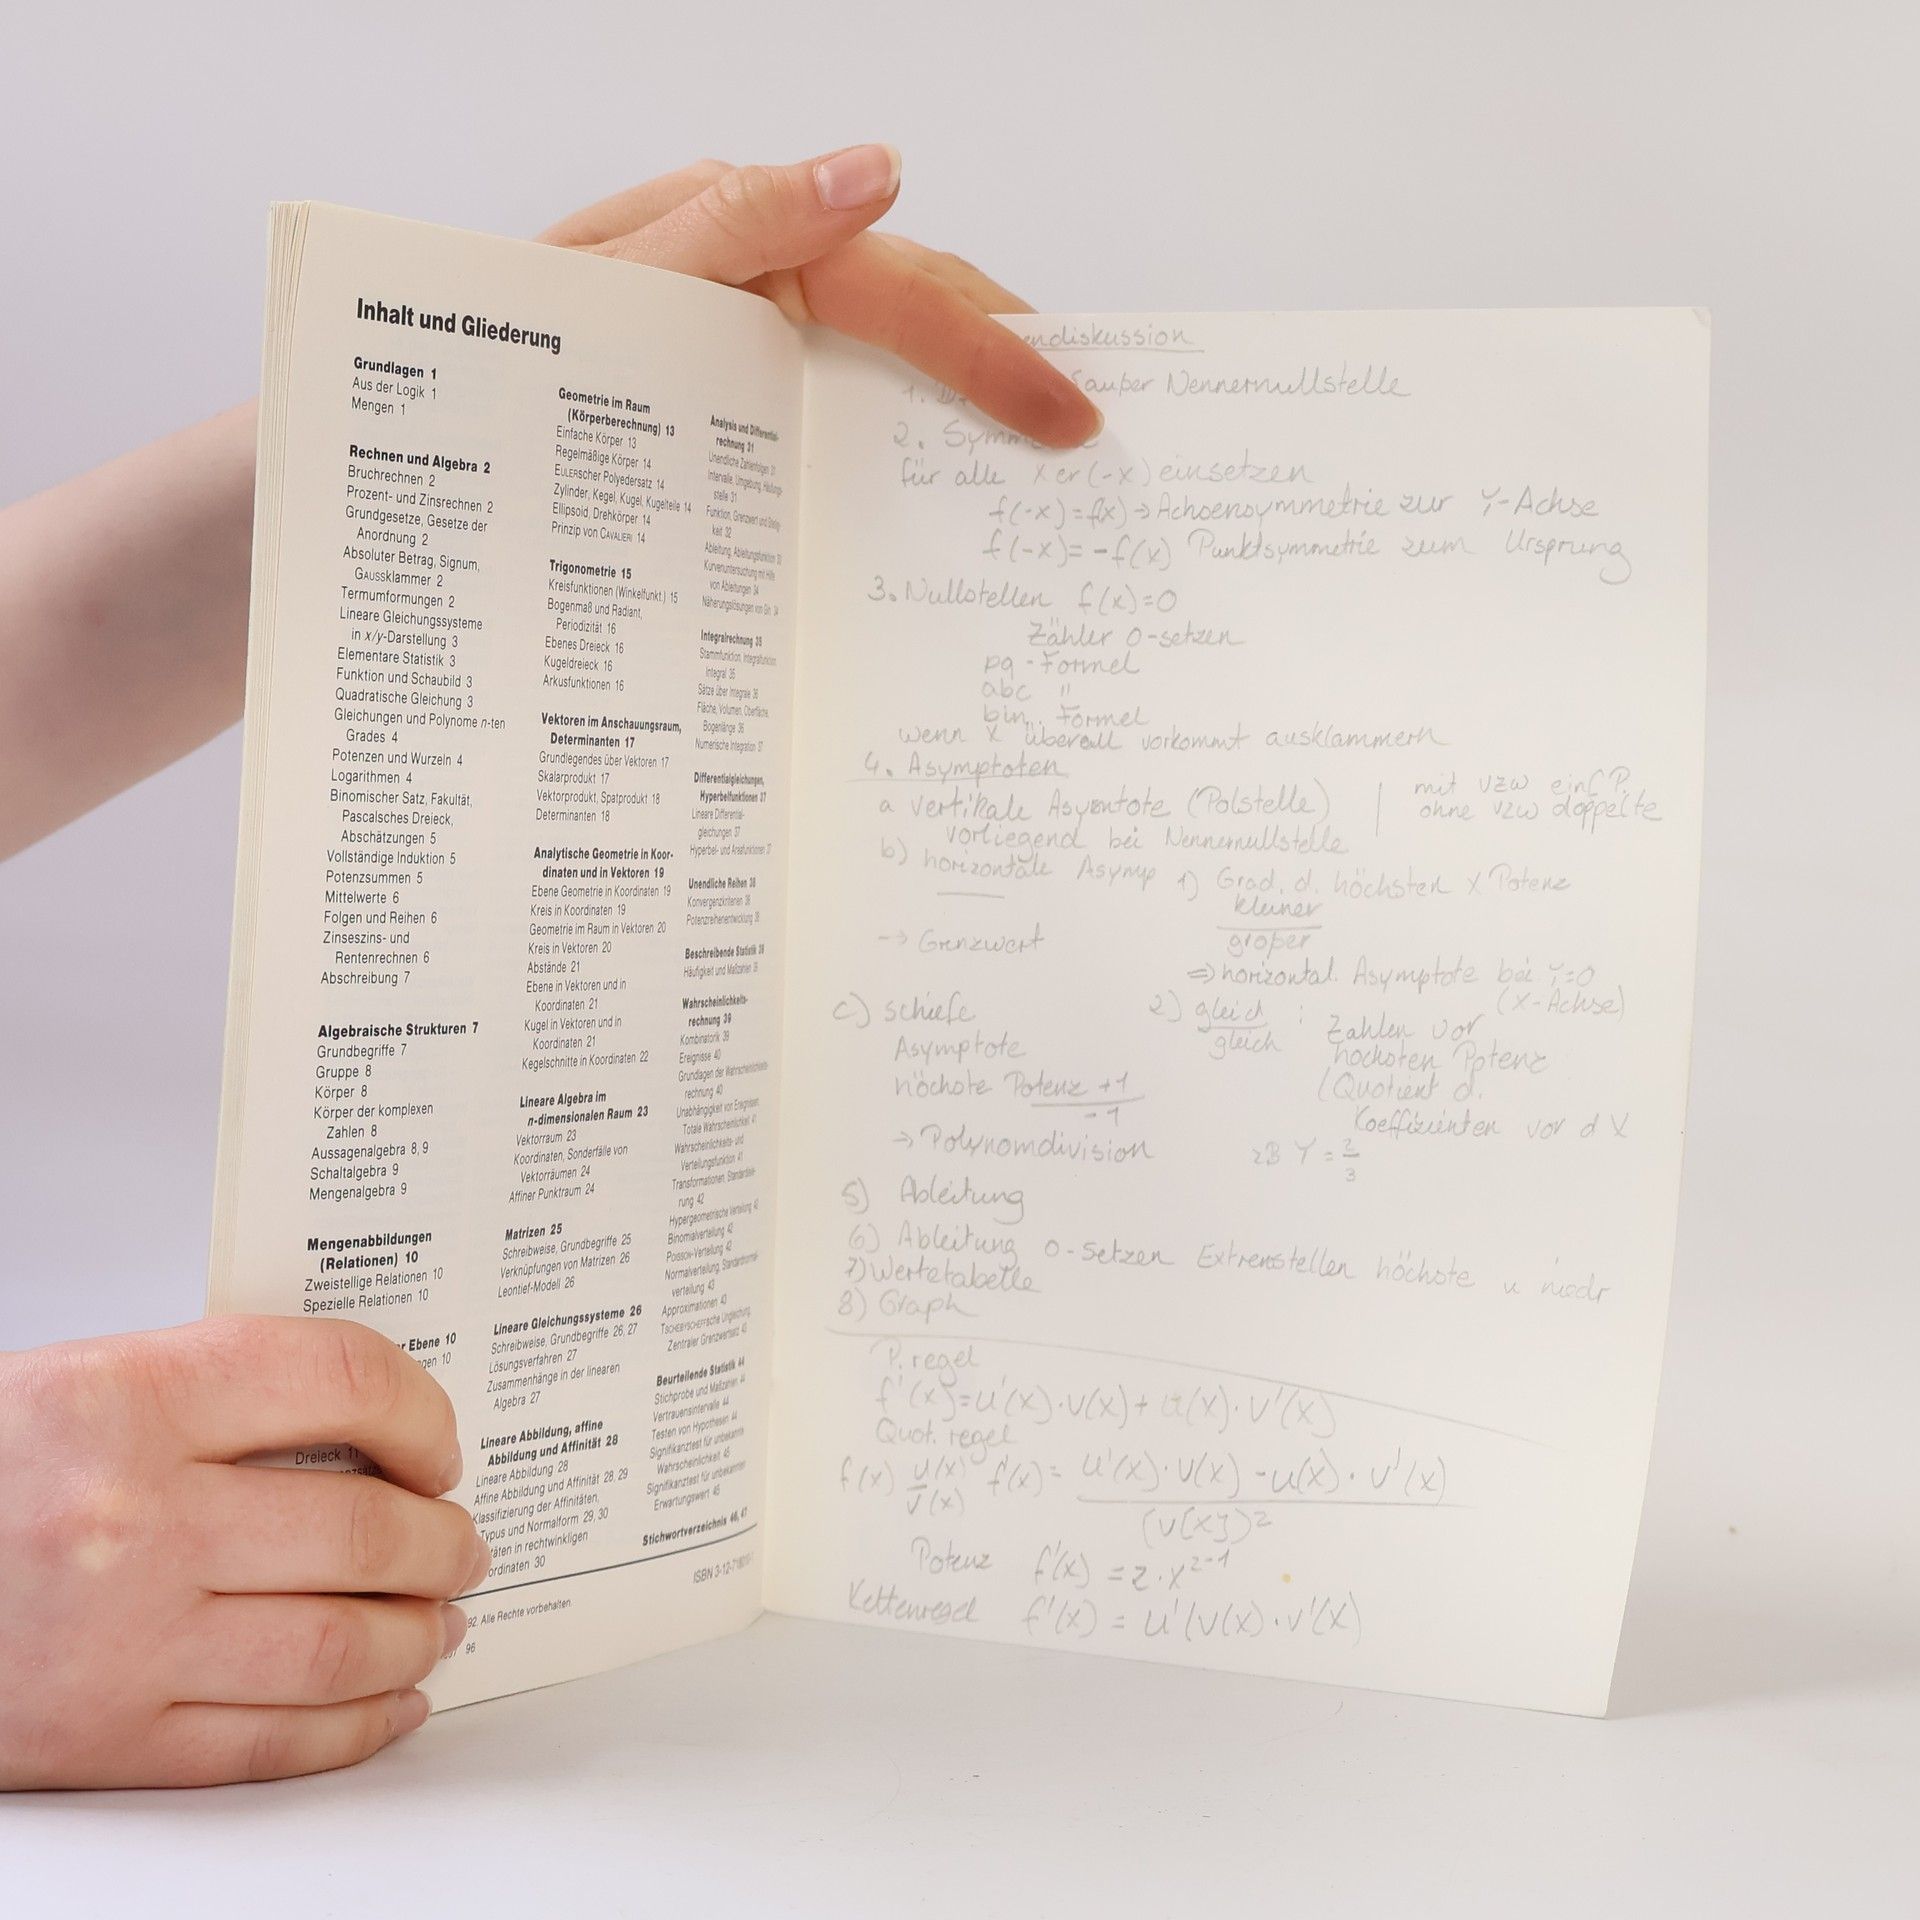 Inhalt und Gliederung
Grundlagen 1
Aus der Logik 1
Mengen 1
Rechnen und Algebra 2
Bruchrechnen 2
Prozent- und Zinsrechnen 2
Grundgesetze, Gesetze der
Anordnung 2
Absoluter Betrag, Signum,
GAUSSklammer 2
Termumformungen 2
Lineare Gleichungssysteme
in x/y-Darstellung 3
Elementare Statistik 3
Funktion und Schaubild 3
Quadratische Gleichung 3
Gleichungen und Polynome n-ten
Grades 4
Potenzen und Wurzeln 4
Logarithmen 4
Binomischer Satz, Fakultät,
Pascalsches Dreieck,
Abschätzungen 5
Vollständige Induktion 5
Potenzsummen 5
Mittelwerte 6
Folgen und Reihen 6
Zinseszins- und
Rentenrechnen 6
Abschreibung 7
Algebraische Strukturen 7
Grundbegriffe 7
Gruppe 8
Körper 8
Körper der komplexen
Zahlen 8
Aussagenalgebra 8, 9
Schaltalgebra 9
Mengenalgebra 9
Mengenabbildungen
(Relationen) 10
Zweistellige Relationen 10
Spezielle Relationen 10
Ebene 10
10
Dreieck 11
Geometrie im Raum
(Körperberechnung) 13
Einfache Körper 13
Regelmäßige Körper 14
EULERscher Polyedersatz 14
Zylinder, Kegel, Kugel, Kugelteile 14
Ellipsoid, Drehkörper 14
Prinzip von CAVALIERI 14
Trigonometrie 15
Kreisfunktionen (Winkelfunkt.) 15
Bogenmaß und Radiant,
Periodizität 16
Ebenes Dreieck 16
Kugeldreieck 16
Arkusfunktionen 16
Vektoren im Anschauungsraum,
Determinanten 17
Grundlegendes über Vektoren 17
Skalarprodukt 17
Vektorprodukt, Spatprodukt 18
Determinanten 18
Analytische Geometrie in Koor-
dinaten und in Vektoren 19
Ebene Geometrie in Koordinaten 19
Kreis in Koordinaten 19
Geometrie im Raum in Vektoren 20
Kreis in Vektoren 20
Abstände 21
Ebene in Vektoren und in
Koordinaten 21
Kugel in Vektoren und in
Koordinaten 21
Kegelschnitte in Koordinaten 22
Lineare Algebra im
n-dimensionalen Raum 23
Vektorraum 23
Koordinaten, Sonderfälle von
Vektorräumen 24
Affiner Punktraum 24
Matrizen 25
Schreibweise, Grundbegriffe 25
Verknüpfungen von Matrizen 26
Leontief-Modell 26
Lineare Gleichungssysteme 26
Schreibweise, Grundbegriffe 26, 27
Lösungsverfahren 27
Zusammenhänge in der linearen
Algebra 27
Lineare Abbildung, affine
Abbildung und Affinität 28
Lineare Abbildung 28
Affine Abbildung und Affinität 28, 29
Klassifizierung der Affinitäten,
Typus und Normalform 29, 30
täten in rechtwinkligen
ordinaten 30
Analysis und Differential-
rechnung 31
Unendliche Zahlenfolgen 31
Intervalle, Umgebung, Häufungs-
stelle 31
Funktion, Grenzwert und Stetig-
keit 32
Ableitung, Ableitungsfunktion 33
Kurvenuntersuchung mit Hilfe
von Ableitungen 34
Näherungslösungen von Gln. 34
Integralrechnung 35
Stammfunktion, Integralfunktion,
Integral 35
Sätze über Integrale 36
Fläche, Volumen, Oberfläche,
Bogenlänge 36
Numerische Integration 37
Differentialgleichungen,
Hyperbelfunktionen 37
Lineare Differential-
gleichungen 37
Hyperbel- und Areafunktionen 37
Unendliche Reihen 38
Konvergenzkriterien 38
Potenzreihenentwicklung 38
Beschreibende Statistik 39
Häufigkeit und Maßzahlen 39
Wahrscheinlichkeits-
rechnung 39
Kombinatorik 39
Ereignisse 40
Grundlagen der Wahrscheinlichkeits-
rechnung 40
Unabhängigkeit von Ereignissen,
Totale Wahrscheinlichkeit 41
Wahrscheinlichkeits- und
Verteilungsfunktion 41
Transformationen, Standardisie-
rung 42
Hypergeometrische Verteilung 42
Binomialverteilung 42
Poisson-Verteilung 42
Normalverteilung, Standardnormal-
verteilung 43
Approximationen 43
TSCHEBYSCHEFFsche Ungleichung,
Zentraler Grenzwertsatz 43
Beurteilende Statistik 44
Stichprobe und Maßzahlen 44
Vertrauensintervalle 44
Testen von Hypothesen 44
Signifikanztest für unbekannte
Wahrscheinlichkeit 45
Signifikanztest für unbekannten
Erwartungswert 45
Stichwortverzeichnis 46, 47
ISBN 3-12-
92. Alle Rechte vorbehalten.
96
endiskussion
1. außer Nennernullstelle
2. Symm
für alle x er (-x) einsetzen
f(-x)=f(x) → Achsensymmetrie zur Y-Achse
f(-x)= -f(x) Punktsymmetrie zum Ursprung
3. Nullstellen f(x)=0
Zähler 0-setzen
pq-Formel
abc "
bin. Formel
wenn x überall vorkommt ausklammern
4. Asymptoten
a vertikale Asymtote (Polstelle) | mit vzw einf P.
vorliegend bei Nennernullstelle ohne vzw doppelte
b) horizontale Asymp 1) Grad. d. höchsten x Potenz
kleiner
größer
→ Grenzwert
⇒ horizontal. Asymptote bei Y=0
(X-Achse)
c) schiefe
Asymptote
höchste Potenz +1
-1
→ Polynomdivision
2) gleich : Zahlen vor
gleich höchsten Potenz
(Quotient d.
Koeffizienten vor d X
zB Y = 2/3
5) Ableitung
6) Ableitung 0-setzen Extremstellen höchste u niedr
7) Wertetabelle
8) Graph
P. regel
f'(x)=u'(x)·v(x)+u(x)·v'(x)
Quot. regel
f(x) u(x)/v(x) f'(x)= u'(x)·v(x)-u(x)·v'(x)
(v(x))²
Potenz f'(x) = z·x^z-1
Kettenregel f'(x) = u'(v(x)·v'(x)